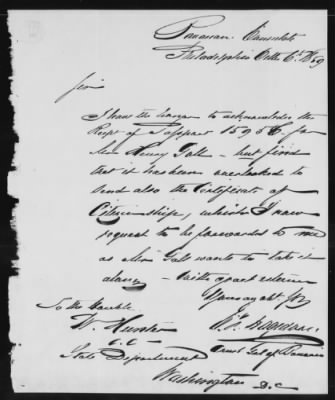 Bavarian Consulate
Philadelphia Octbr 6th 1859
Sir
I have the honor to acknowledge the
Receipt of Passport 15956 for
Mr Henry — but find
that it has been overlooked to
send also the Certificate of
Citizenship, which I now
request to be forwarded to me
as Mr wants to take it
along — With great esteem
Your
To the Honble
W. Hunter
C. C.
State Department
Consul of Bavaria
Washington D.C